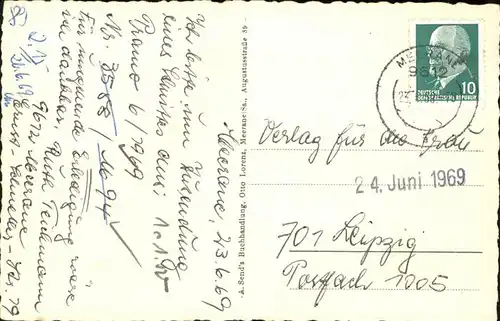 Meerane, 23.6.69
Ich bitte um Zusendung
eines Schnittes aus:
Pramo 6/1969
Nr. 3568/
Für umgehende Erledigung wäre
ich dankbar. Ruth
9612 Meerane
Str. 79
26.6.69
A. Send's Buchhandlung, Otto Lorenz, Meerane/Sa., Augustusstraße 39
MEERANE
9612
DEUTSCHE
DEMOKRATISCHE REPUBLIK
10
Verlag für die Frau
24. Juni 1969
701 Leipzig
Postfach 1005